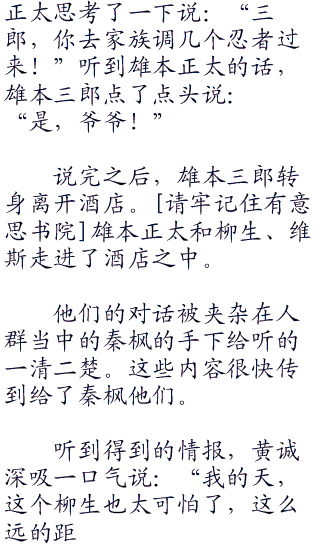 正太思考了一下说：“三
郎，你去家族调几个忍者过
来！”听到雄本正太的话，
雄本三郎点了点头说：
“是，爷爷！”
说完之后，雄本三郎转
身离开酒店。[请牢记住有意
思书院]雄本正太和柳生、维
斯走进了酒店之中。
他们的对话被夹杂在人
群当中的秦枫的手下给听的
一清二楚。这些内容很快传
到给了秦枫他们。
听到得到的情报，黄诚
深吸一口气说：“我的天，
这个柳生也太可怕了，这么
远的距